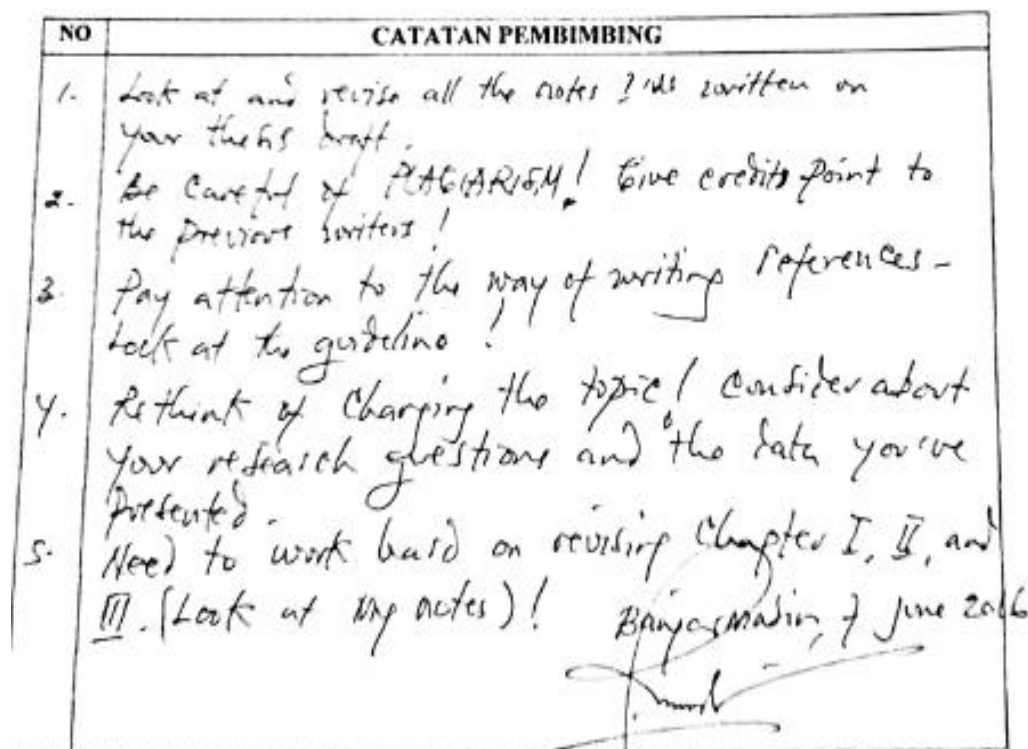 NO CATATAN PEMBIMBING
1. Look at and revise all the notes I've written on
your thesis draft.
2. Be careful of PLAGIARISM! Give credits point to
the previous writers!
3. Pay attention to the way of writing references -
Look at the guideline!
4. Rethink of changing the topic! Consider about
your research questions and the data you've
presented.
5. Need to work hard on revising Chapter I, II, and
III. (Look at my notes)!
Banjarmasin, 7 June 2016